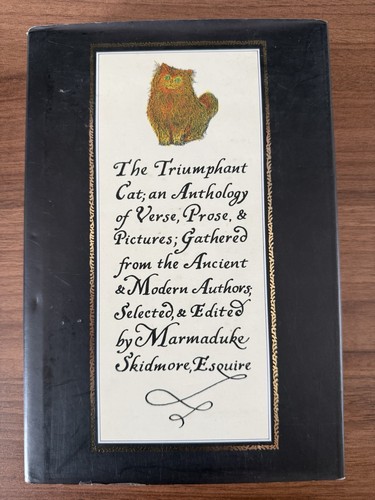 The Triumphant
Cat; an Anthology
of Verse, Prose, &
Pictures; Gathered
from the Ancient
& Modern Authors,
Selected, & Edited
by Marmaduke
Skidmore, Esquire